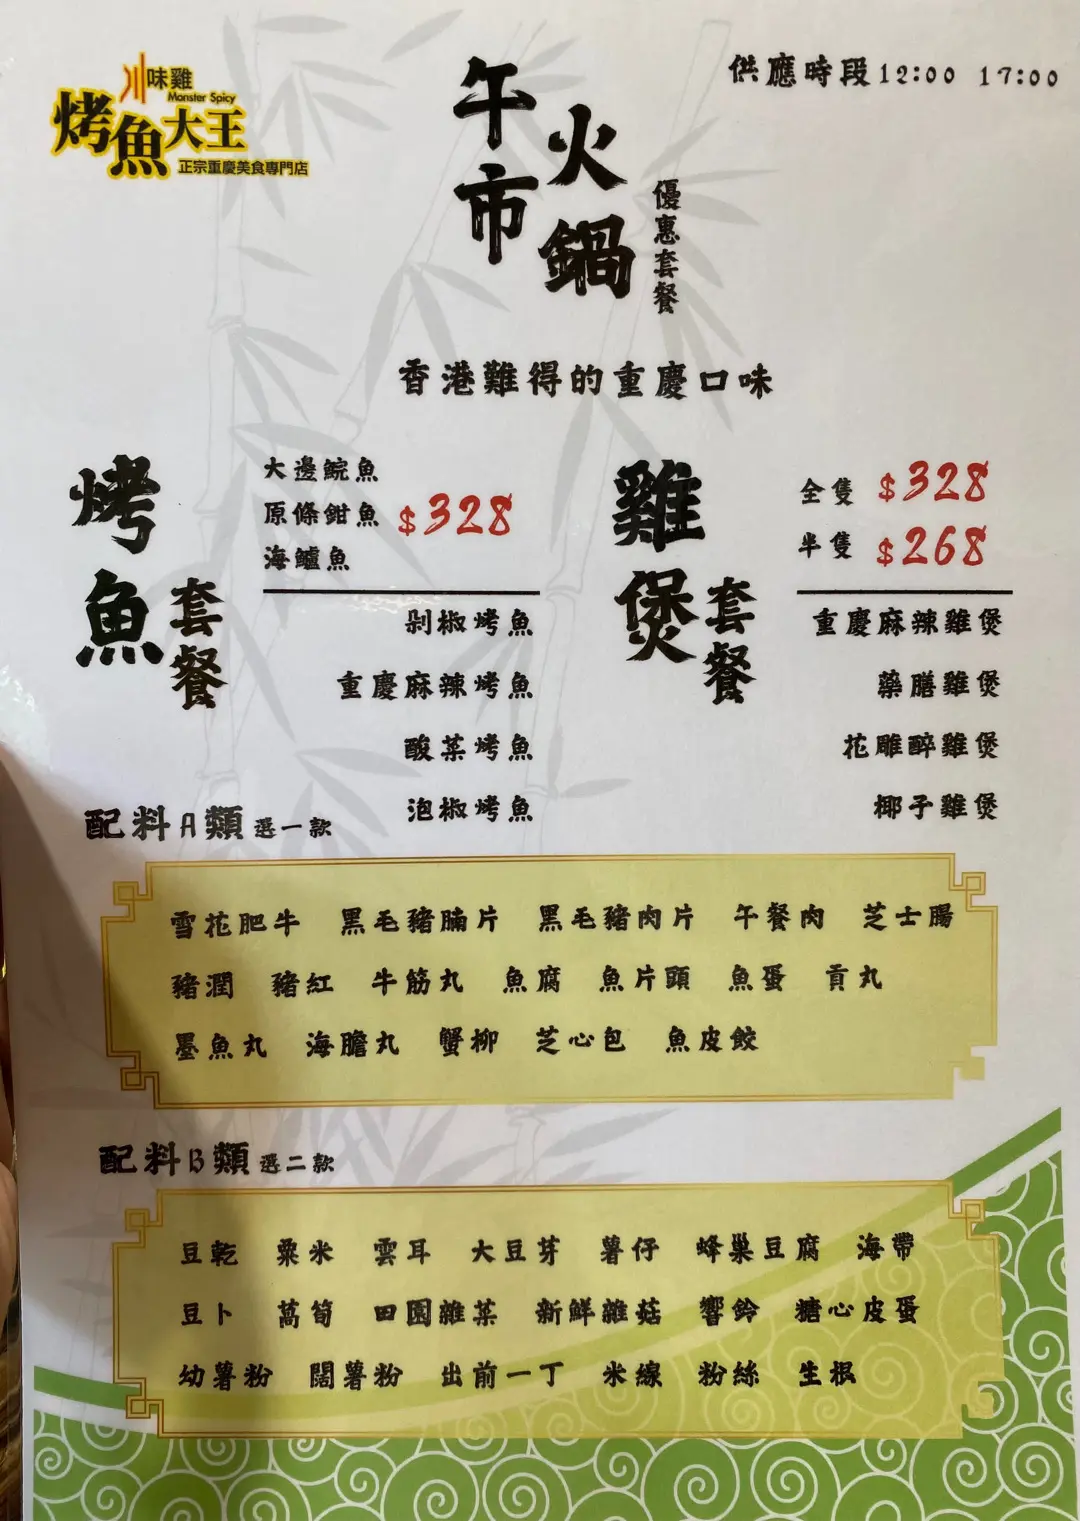 川味雞
Monster Spicy
烤魚大王
正宗重慶美食專門店
供應時段12:00 17:00
午市
火鍋
優惠套餐
香港難得的重慶口味
烤魚
套餐
大邊鯇魚
原條鉗魚
海鱸魚
$328
剁椒烤魚
重慶麻辣烤魚
酸菜烤魚
泡椒烤魚
雞煲
套餐
全隻 $328
半隻 $268
重慶麻辣雞煲
藥膳雞煲
花雕醉雞煲
椰子雞煲
配料A類 選一款
雪花肥牛 黑毛豬腩片 黑毛豬肉片 午餐肉 芝士腸
豬潤 豬紅 牛筋丸 魚腐 魚片頭 魚蛋 貢丸
墨魚丸 海膽丸 蟹柳 芝心包 魚皮餃
配料B類 選二款
豆乾 粟米 雲耳 大豆芽 薯仔 蜂巢豆腐 海帶
豆卜 萵筍 田園雜菜 新鮮雜菇 響鈴 糖心皮蛋
幼薯粉 闊薯粉 出前一丁 米線 粉絲 生根